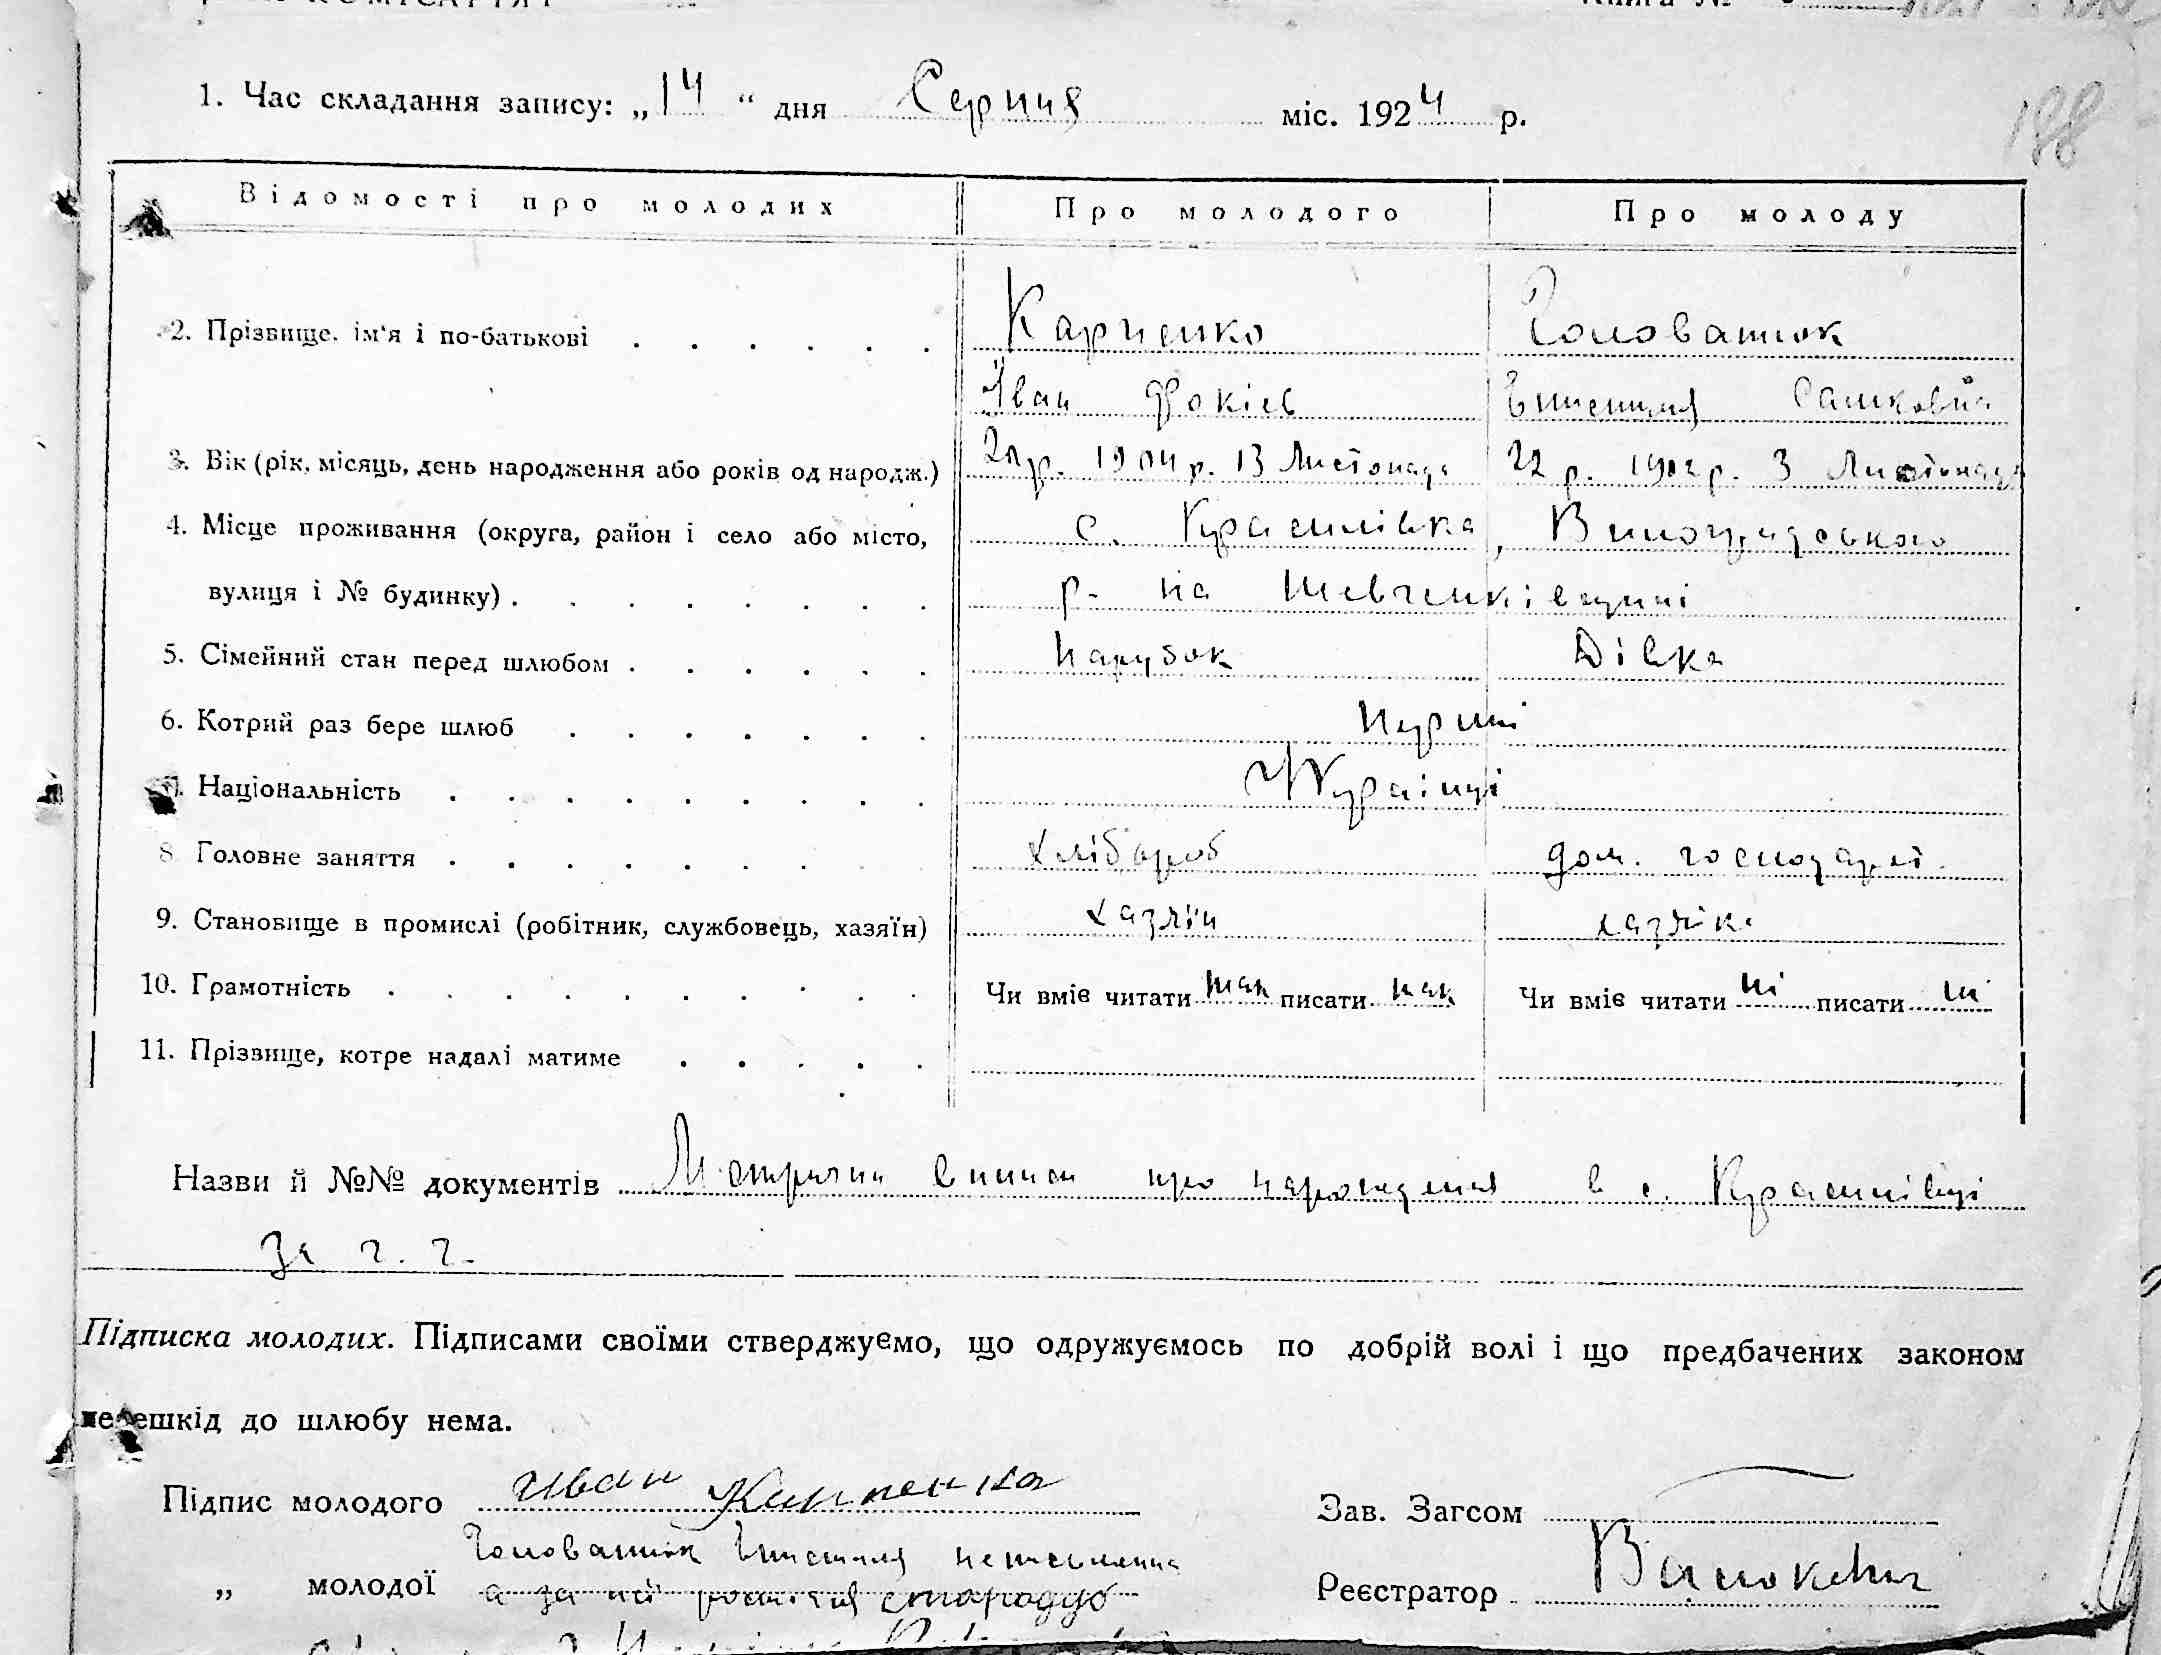 Книга №
1. Час складання запису: „14“ дня Серпня міс. 1924 р.
188
Відомості про молодих Про молодого Про молоду
2. Прізвище, ім'я і по-батькові Карпенко Головатюк
Іван Фокієв
3. Вік (рік, місяць, день народження або років од народж.) 20 р. 1904 р. 13 Листопада 22 р. 1902 р. 3 Листопада
4. Місце проживання (округа, район і село або місто, с. Красилівка, Виноградського
вулиця і № будинку) р- на Шевченківщині
5. Сімейний стан перед шлюбом парубок Дівка
6. Котрий раз бере шлюб перший
7. Національність Українці
8. Головне заняття хлібороб дом. господарст.
9. Становище в промислі (робітник, службовець, хазяїн) хазяїн хазяйка
10. Грамотність Чи вміє читати так писати так Чи вміє читати ні писати ні
11. Прізвище, котре надалі матиме
Назви й №№ документів Метричні виписи про народження в с. Красилівці
за г. г.
Підписка молодих. Підписами своїми стверджуємо, що одружуємось по добрій волі і що предбачених законом
перешкід до шлюбу нема.
Підпис молодого Иван Карпенко Зав. Загсом
Головатюк неписьменна
„ молодої а за неї росписався Реєстратор